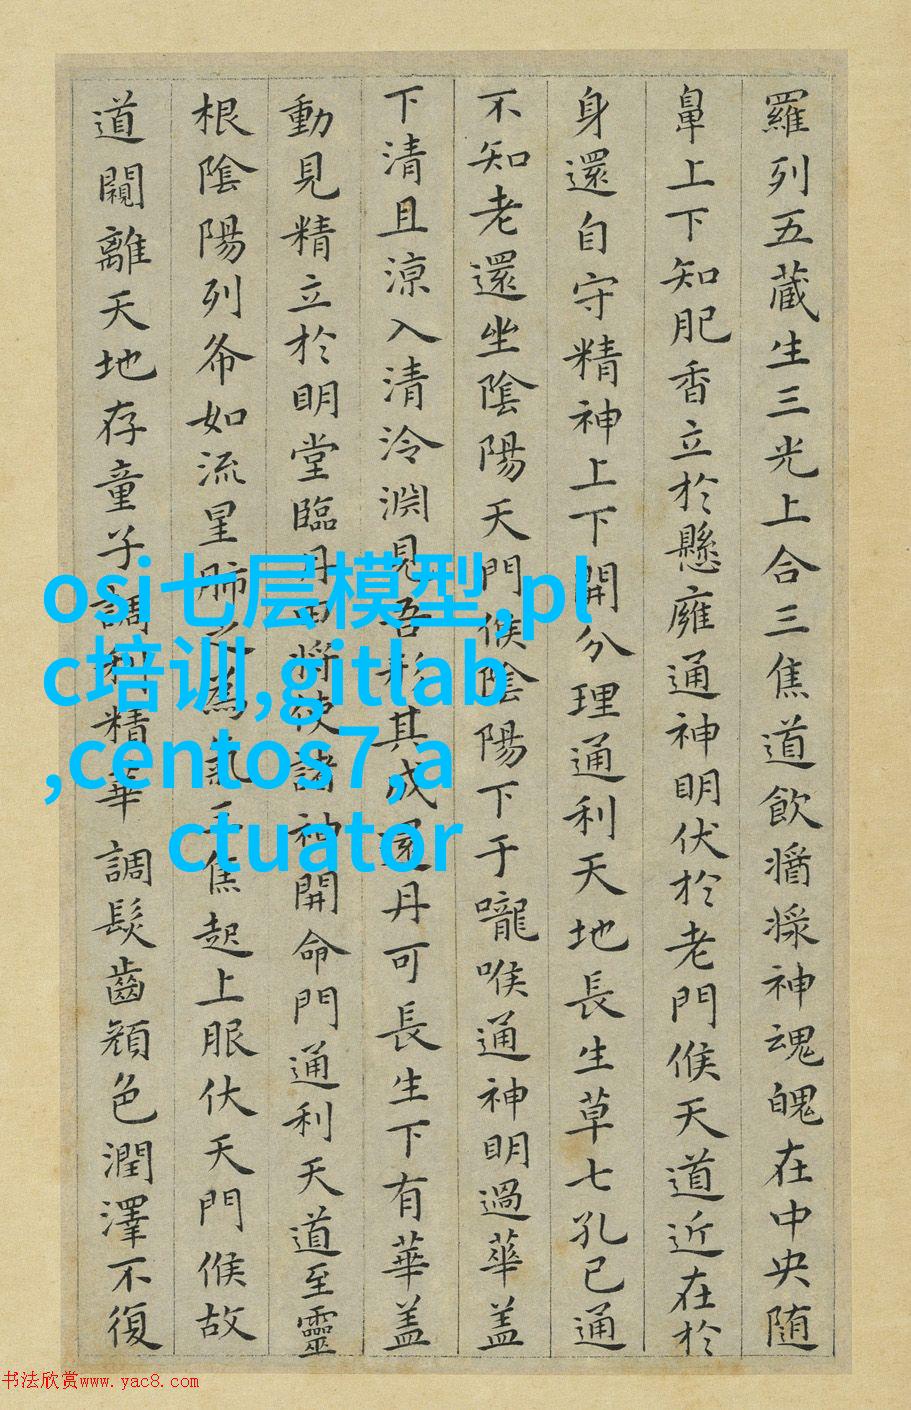 羅列五藏生三光上合三焦道飲醬漿神魂魄在中央随
鼻上下知肥香立於懸廱通神明伏於老門候天道近在於
身還自守精神上下開分理通利天地長生草七孔已通
不知老還坐陰陽天門候陰陽下于嚨喉通神明過華盖
下清且涼入清泠渊見吾形其成還丹可長生下有華盖
動見精立於明堂臨丹田將使諸神開命門通利天道至靈
根陰陽列布如流星肺之為氣三焦起上服伏天門候故
道闚離天地存童子調利精華調髮齒顔色潤澤不復
osi七层模型,pl
c培训,gitlab
,centos7,a
ctuator
书法欣赏www.yac8.com